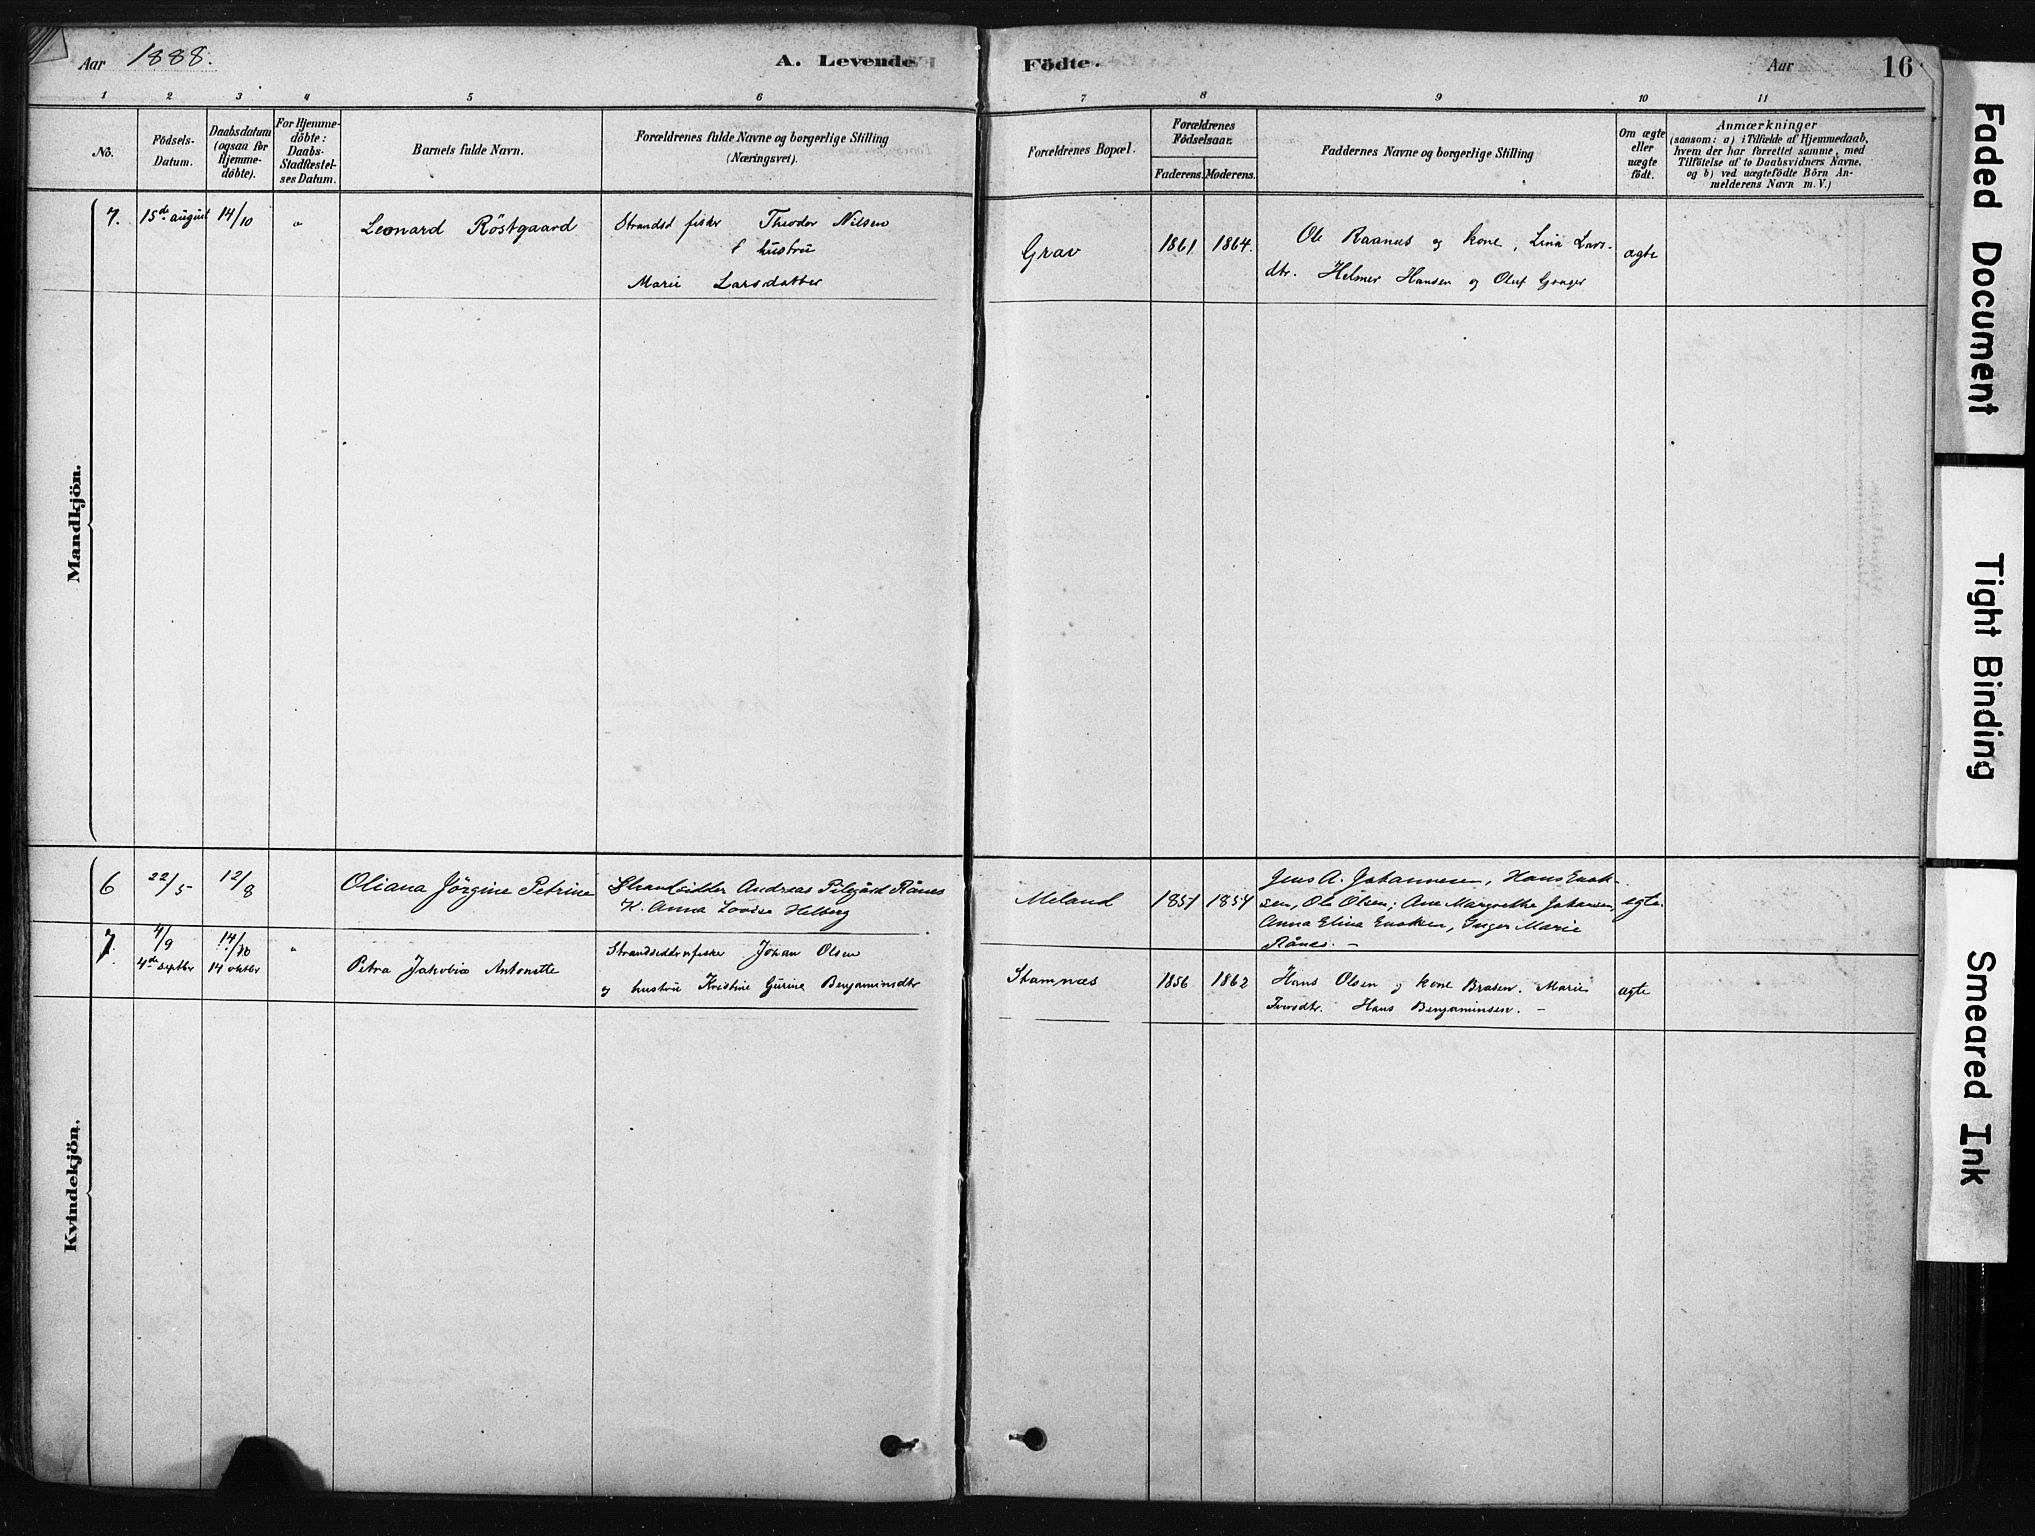 Aar 1888.
A. Levende
Födte.
Aar
16
1 2 3 4 5 6 7 8 9 10 11
No.
Födsels-
Datum.
Daabsdatum
(ogsaa for
Hjemme-
döbte).
For Hjemme-
döbte:
Daabs-
Stadfæstel-
ses Datum.
Barnets fulde Navn.
Forældrenes fulde Navne og borgerlige Stilling
(Næringsvei).
Forældrenes Bopæl.
Forældrenes
Födselsaar.
Faderens. Moderens.
Faddernes Navne og borgerlige Stilling
Om ægte
eller
uægte
födt.
Anmærkninger
(saasom: a) i Tilfælde af Hjemmedaab,
hvem der har forrettet samme, med
Tilföielse af to Daabsvidners Navne,
og b) ved uægtefödte Börn An-
melderens Navn m. V.)
Mandkjön.
7. 15de august 14/10 " Leonard Röstgaard
Strandsd fisker Theodor Nilsen
hustru
Marie Larsdatter
Grav
1861 1864.
Ole Raanes og kone, Lina Lars-
dtr. Helmer Hansen og Oluf
ægte
Kvindekjön.
6 22/5 12/8 Oliana Jörgine Petrine
Strandsidder Andreas Pilgård Rånes
H. Anna Lovise Helberg
Meland
1851 1854
Jens A. Johannesen, Hans Enok-
sen, Ole Olsen; Ane Margrethe Johansen,
Anna Elina Enoksen, Inger Marie
Rånes. –
egte.
7. 4/9 14/10 "
4de septbr 14 oktbr
Petra Jakobia Antonette
Strandsidder fisker Johan Olsen
og hustru Kristine Gurine Benjaminsdtr
Stamnæs
1856 1862
Hans Olsen og kone Brasen. Marie
Iversdtr. Hans Benjaminsen. –
ægte
Faded Document
Tight Binding
Smeared Ink